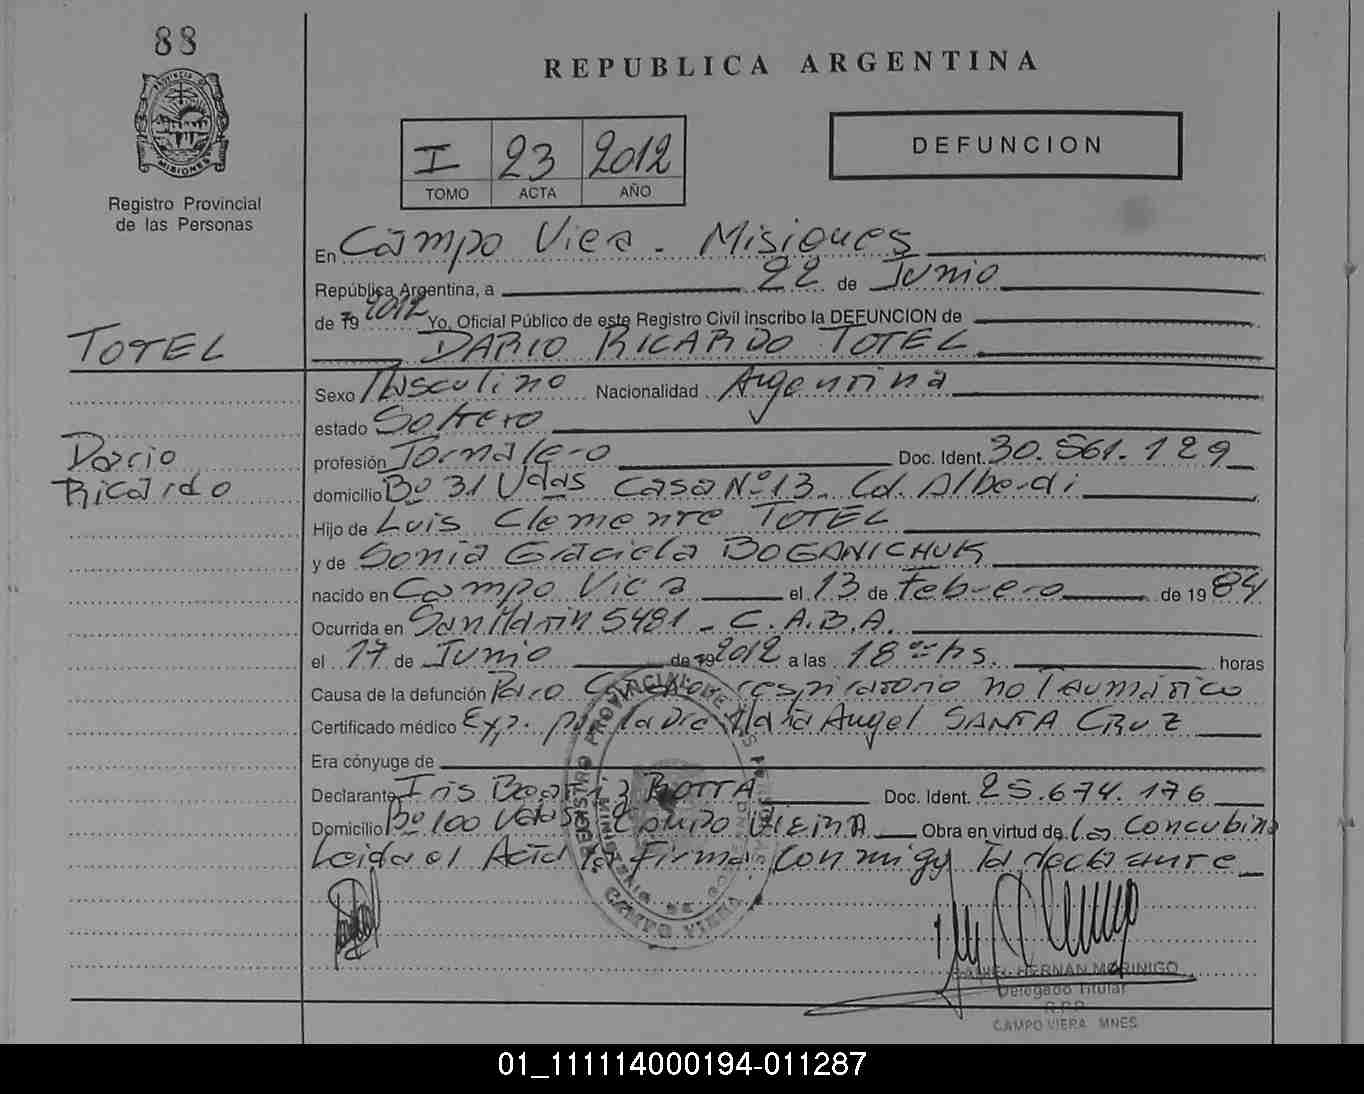 88
PROVINCIA DE
MISIONES
Registro Provincial
de las Personas
REPUBLICA ARGENTINA
I 23 2012
TOMO ACTA AÑO
DEFUNCION
En Campo Viera - Misiones
República Argentina, a 22 de Junio
de 19 2012 Yo, Oficial Público de este Registro Civil inscribo la DEFUNCION de
TOTEL
DARIO RICARDO TOTEL
Sexo Masculino Nacionalidad Argentina
estado Soltero
Dario
Ricardo
profesión Jornalero Doc. Ident. 30.561.129
domicilio Bº 31 Vdas Casa Nº 13 - Cd. Alberdi
Hijo de Luis Clemente TOTEL
y de Sonia Graciela BOGANICHUK
nacido en Campo Viera el 13 de Febrero de 1984
Ocurrida en San Martin 5481 - C.A.B.A.
el 17 de Junio de 19 2012 a las 18 hs. horas
Causa de la defunción Paro respiratorio no Traumático
Certificado médico Exp. por la Dra María Angel SANTA CRUZ
Era cónyuge de
Declarante Iris ROTTA Doc. Ident. 25.674.176
Domicilio Bº 100 Vdas Campo VIERA Obra en virtud de la Concubina
Leida el Acta la Firma Conmigo la declarante
REGISTRO PROVINCIAL DE LAS PERSONAS
MINISTERIO DE GOBIERNO
CAMPO VIERA
HERNAN MORINIGO
Delegado Titular
R.P.P.
CAMPO VIERA MNES
01_111114000194-011287